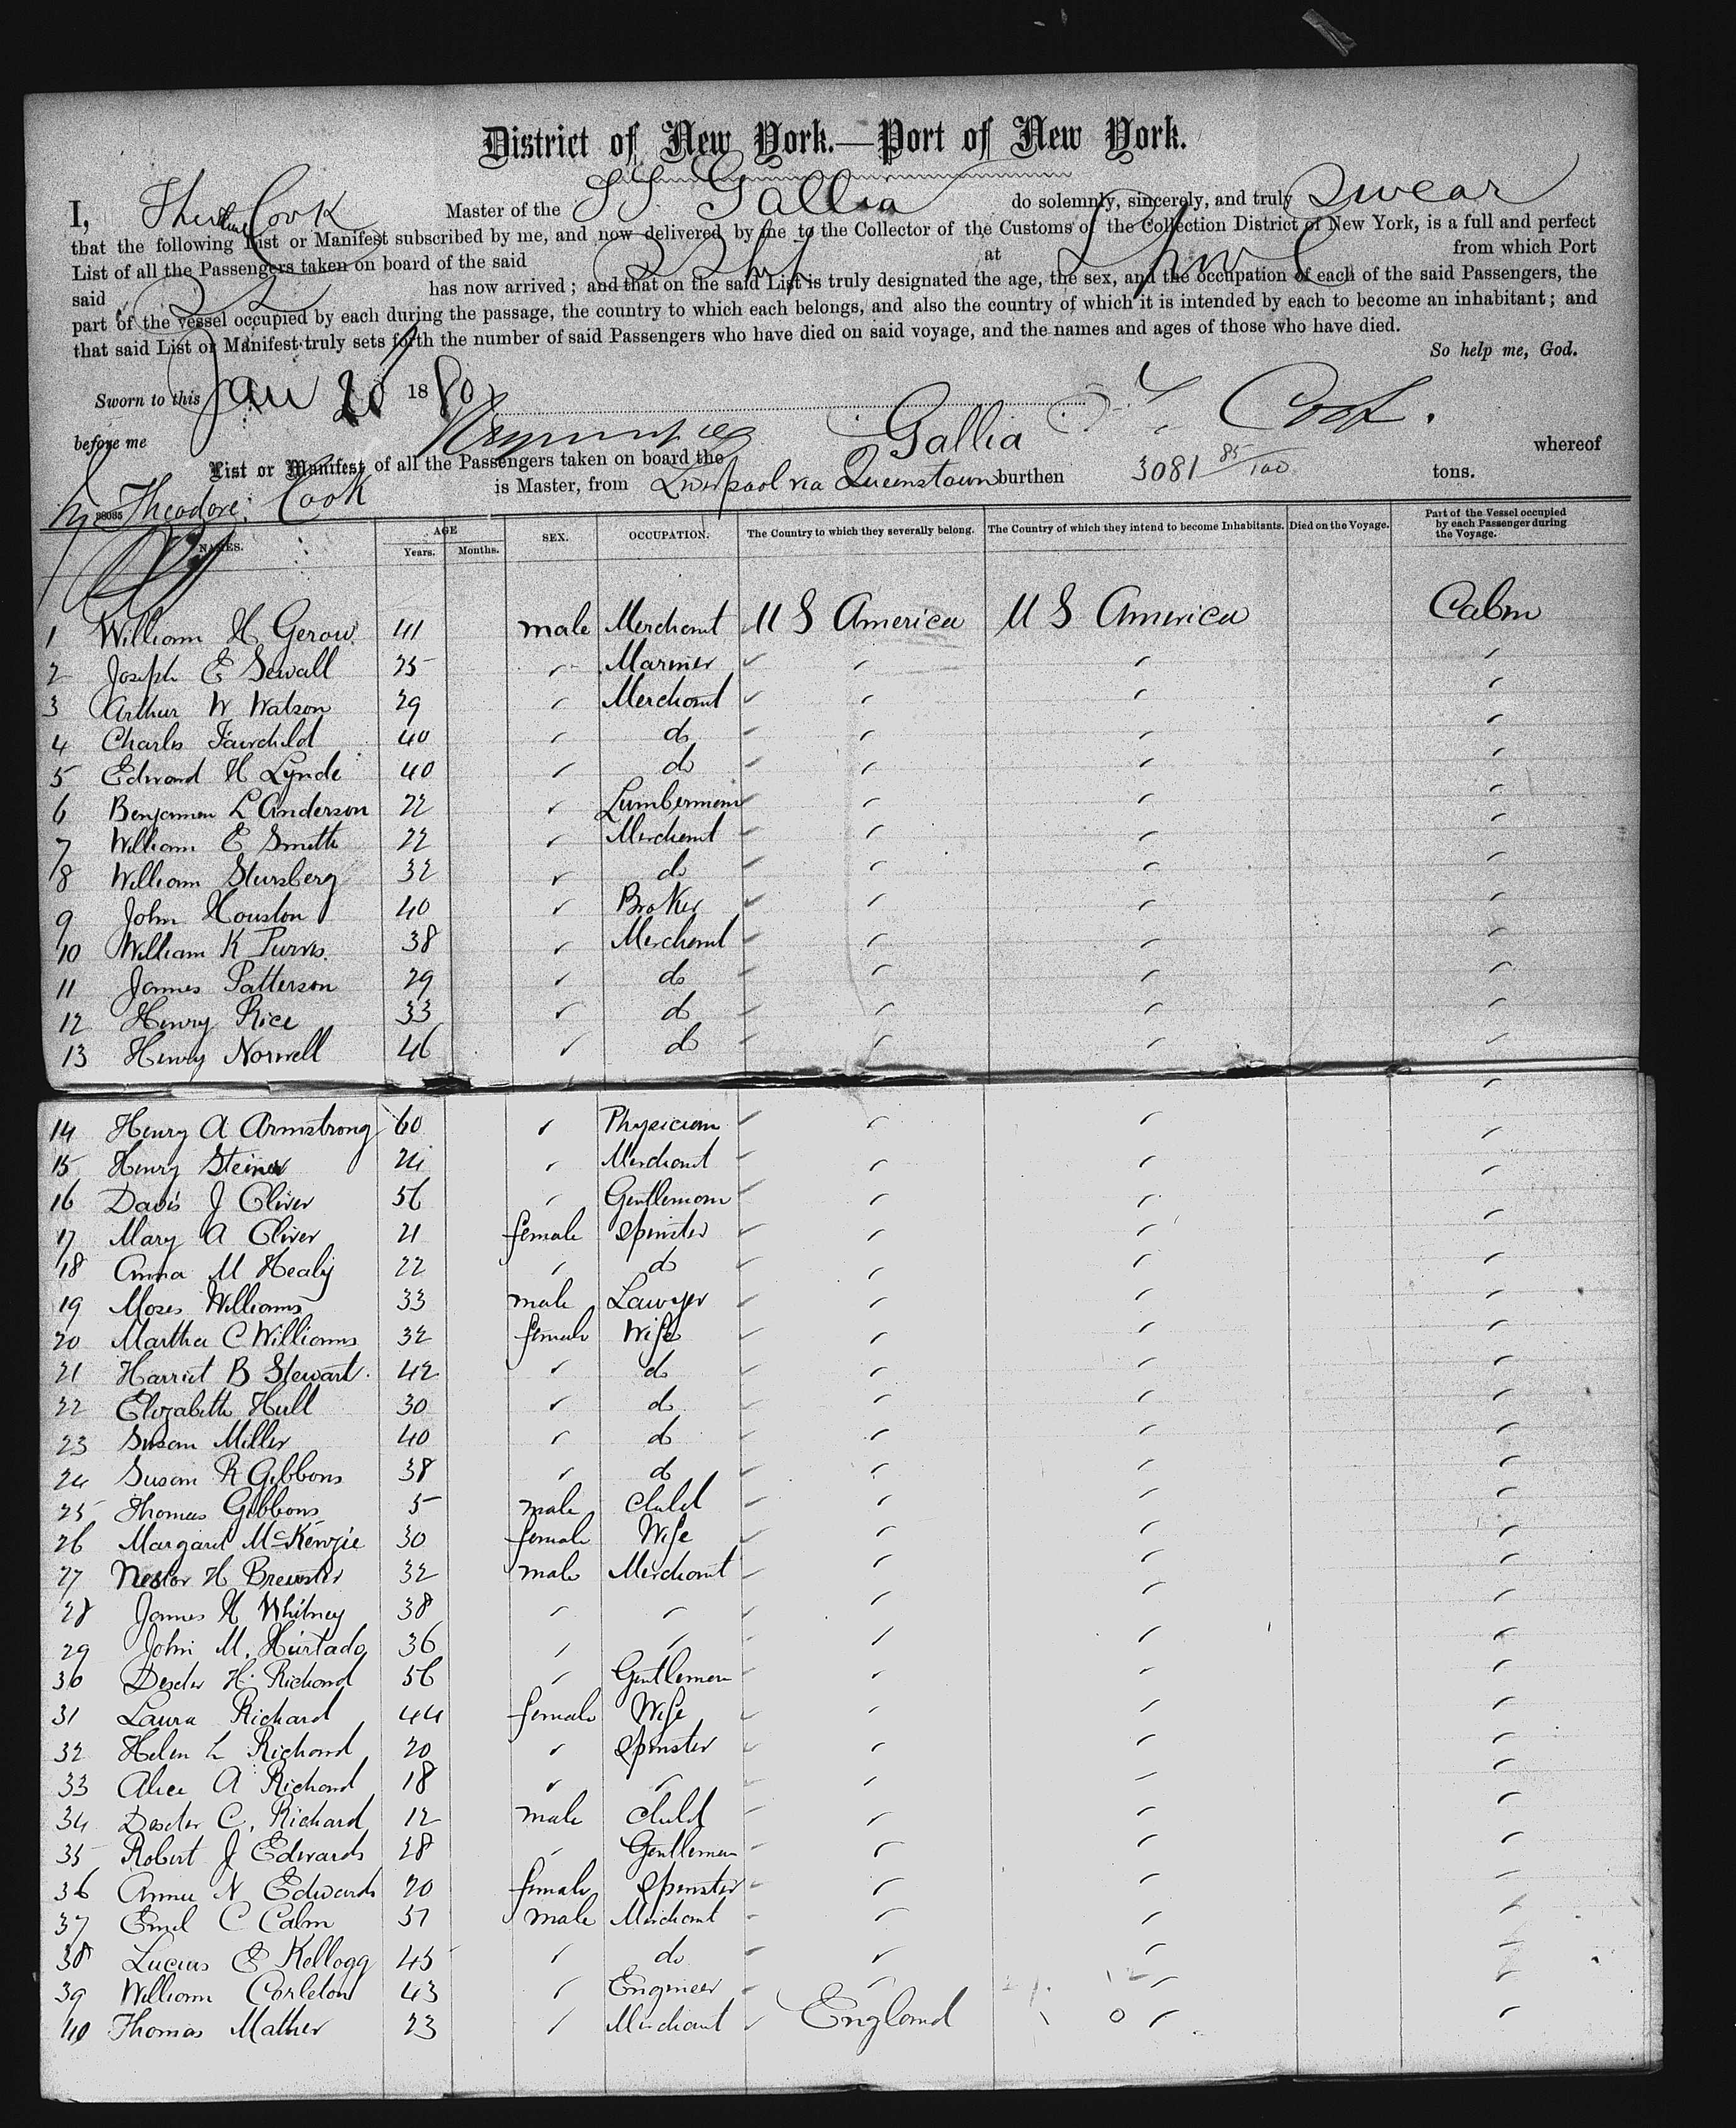 District of New York.—Port of New York.
I, Theodore Cook Master of the SS Gallia do solemnly, sincerely, and truly Swear
that the following List or Manifest subscribed by me, and now delivered by me to the Collector of the Customs of the Collection District of New York, is a full and perfect
List of all the Passengers taken on board of the said at from which Port
said has now arrived; and that on the said List is truly designated the age, the sex, and the occupation of each of the said Passengers, the
part of the vessel occupied by each during the passage, the country to which each belongs, and also the country of which it is intended by each to become an inhabitant; and
that said List or Manifest truly sets forth the number of said Passengers who have died on said voyage, and the names and ages of those who have died.
So help me, God.
Sworn to this Jan 1880 Cook.
before me
List or Manifest of all the Passengers taken on board the Gallia whereof
Theodore Cook is Master, from Liverpool via Queenstown burthen 3081 85/100 tons.
38035
NAMES. AGE Years. Months. SEX. OCCUPATION. The Country to which they severally belong. The Country of which they intend to become Inhabitants. Died on the Voyage. Part of the Vessel occupied by each Passenger during the Voyage.
1 William H Gerow 41 male Merchant U S America U S America Cabin
2 Joseph E Sewall 25 Mariner
3 Arthur W Watson 29 Merchant
4 Charles Fairchild 40 do
5 Edward H Lynde 40 do
6 Benjamin L Anderson 22 Lumberman
7 William E Smith 22 Merchant
8 William Stursberg 32 do
9 John Houston 40 Broker
10 William K Purvis. 38 Merchant
11 James Patterson 29 do
12 Henry Rice 33 do
13 Henry Norwell 46 do
14 Henry A Armstrong 60 Physician
15 Henry Steiner 24 Merchant
16 Davis J Oliver 56 Gentleman
17 Mary A Oliver 21 female Spinster
18 Anna M Healy 22 do
19 Moses Williams 33 male Lawyer
20 Martha C Williams 32 female Wife
21 Harriet B Stewart 42 do
22 Elizabeth Hull 30 do
23 Susan Miller 40 do
24 Susan R Gibbons 38 do
25 Thomas Gibbons 5 male Child
26 Margaret McKenzie 30 female Wife
27 Nestor H Brewster 32 male Merchant
28 James H Whitney 38
29 John M. Hurtado 36
30 Dexter H. Richard 56 Gentleman
31 Laura Richard 44 female Wife
32 Helen L Richard 20 Spinster
33 Alice A Richard 18
34 Dexter C. Richard 12 male Child
35 Robert J Edwards 28 Gentleman
36 Annie N Edwards 20 female Spinster
37 Emil C Calm 37 male Merchant
38 Lucius E Kellogg 45 do
39 William Carleton 43 Engineer
40 Thomas Mather 23 Merchant England